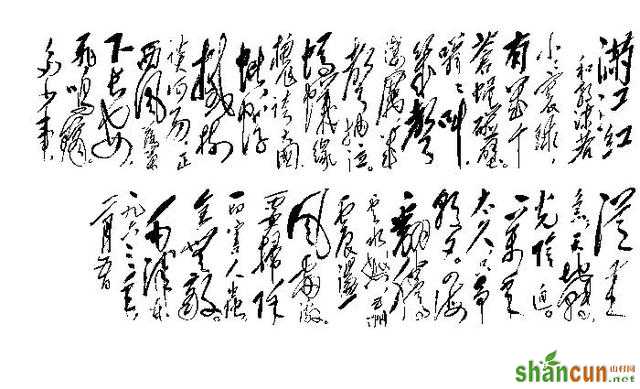 满江红
和郭沫若
小小寰球，
有几个
蒼蝇碰壁。
嗡嗡叫，
几聲
凄厲，几
聲抽泣。
蚂蟻缘
槐誇大國
蚍蜉
撼樹
谈何易。正
西风落葉
下长安，
飛鳴镝。
多少事，
從来
急。天地转，
光陰迫。
一万年
太久，只争
朝夕。四海
翻腾
雲水怒，五洲
震盪
风雷激。
要掃除
一切害人虫，
全無敌。
毛泽东
一九六三年
二月五日
shancun 山村网
.net